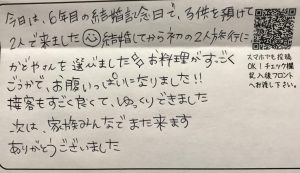 今日は、6年目の結婚記念日で、子供を預けて
2人で来ました 結婚してから初の2人旅行に、
かどやさんを選びました お料理がすごく
ごうかで、お腹いっぱいになりました!!
接客もすごく良くて、ゆっくりできました
次は、家族みんなでまた来ます
ありがとうございました
スマホでも投稿
OK!チェック欄
記入後フロント
へお渡し下さい。